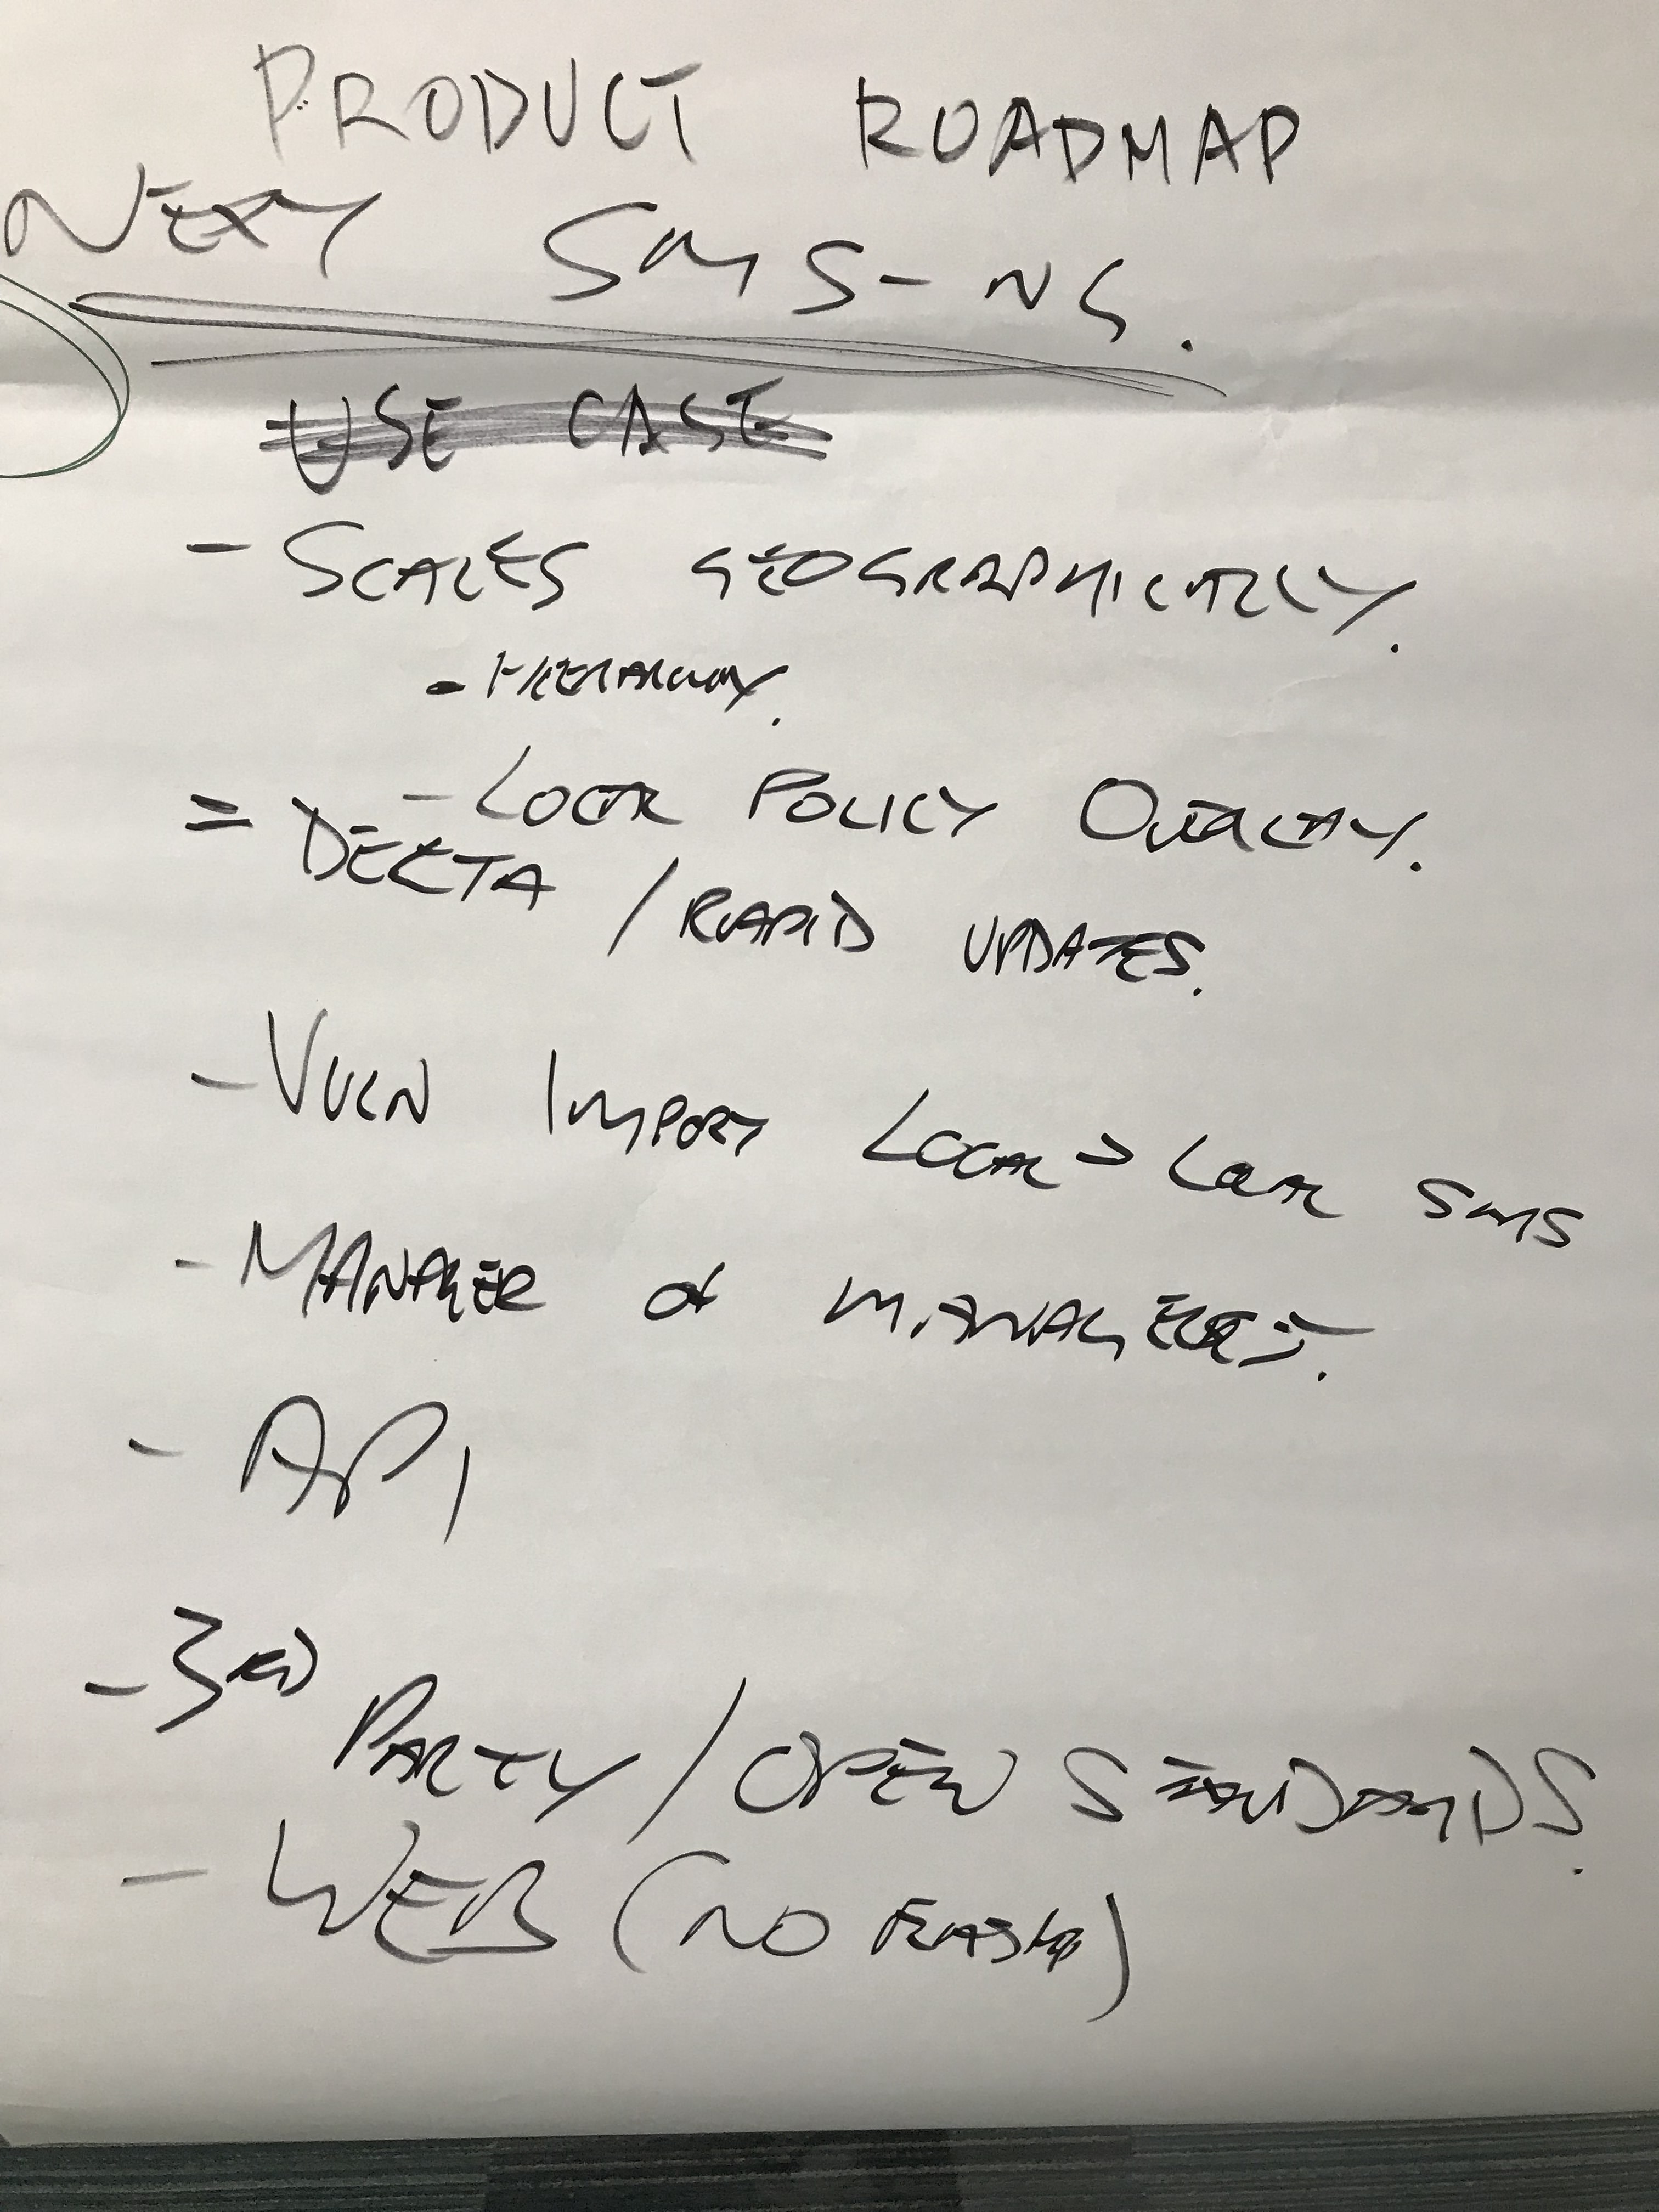 PRODUCT ROADMAP
NEXT SMS-NS.
USE CASE
- SCALES GEOGRAPHICALLY.
- HIERARCHY.
- LOCAL POLICY OVERLAY.
= DELTA / RAPID UPDATES.
- VULN IMPORT LOCAL > LOCAL SMS
- MANAGER of MANAGERS.
- API
- 3RD PARTY / OPEN STANDARDS.
- WEB (NO FLASH)